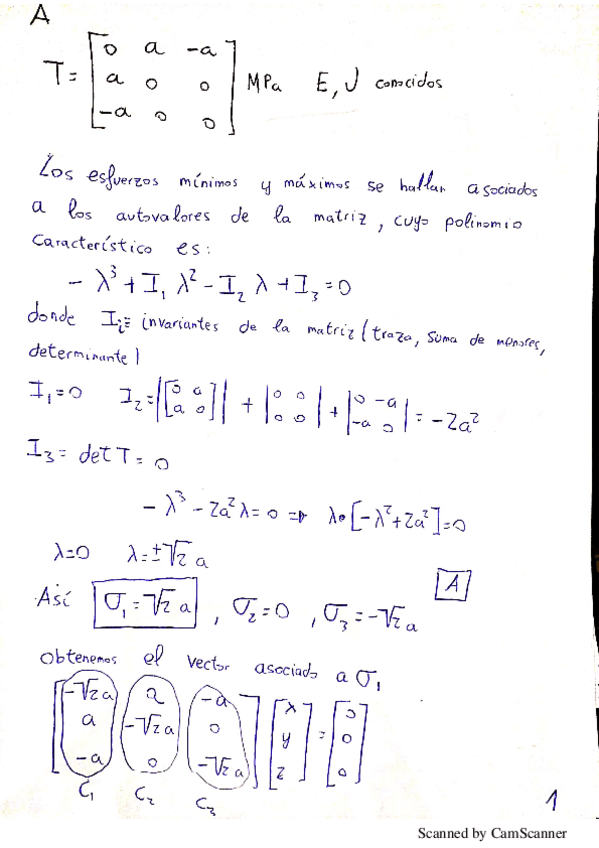 A
T = [0 a -a; a 0 0; -a 0 0] MPa E, J conocidos
Los esfuerzos mínimos y máximos se hallan asociados
a los autovalores de la matriz, cuyo polinomio
Característico es:
- λ³ + I₁ λ² - I₂ λ + I₃ = 0
donde Iᵢ ≡ invariantes de la matriz (traza, suma de menores,
determinante)
I₁ = 0 I₂ = |[0 a; a 0]| + |0 0; 0 0| + |0 -a; -a 0| = -2a²
I₃ = det T = 0
- λ³ - 2a² λ = 0 ⇒ λ · [-λ² + 2a²] = 0
λ = 0 λ = ±√2 a
A
Así σ₁ = √2 a , σ₂ = 0 , σ₃ = -√2 a
obtenemos el vector asociado a σ₁
[-√2 a a -a; a -√2 a 0; -a 0 -√2 a] [x; y; z] = [0; 0; 0]
C₁ C₂ C₃
1
Scanned by CamScanner